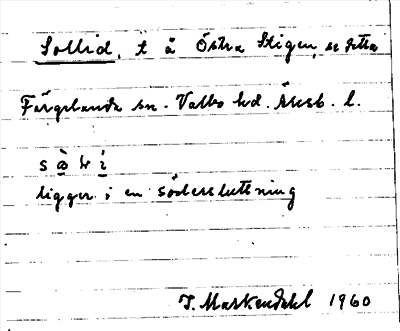 Sollid, t å Östra Stigen, se detta
Färgelanda sn. Valbo hd. Älvsb. l.
ligger i en södersluttning
J. Markendahl 1960